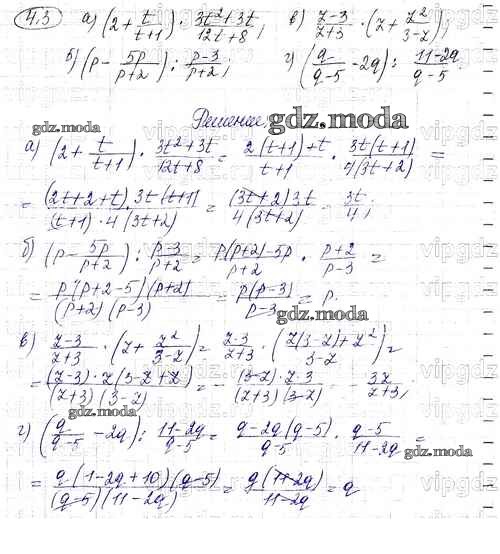 4.3 а) (2 + t/(t+1)) · (3t²+3t)/(12t+8); в) (z-3)/(z+3) · (z + z²/(3-z));
б) (p - 5p/(p+2)) : (p-3)/(p+2); г) (q/(q-5) - 2q) : (11-2q)/(q-5).
Решение.
gdz.moda
gdz.moda
а) (2 + t/(t+1)) · (3t²+3t)/(12t+8) = (2(t+1)+t)/(t+1) · 3t(t+1)/4(3t+2) =
= (2t+2+t) · 3t(t+1)/(t+1) · 4(3t+2) = (3t+2)3t/4(3t+2) = 3t/4;
б) (p - 5p/(p+2)) : (p-3)/(p+2) = (p(p+2)-5p)/(p+2) · (p+2)/(p-3) =
= p(p+2-5)(p+2)/(p+2)(p-3) = p(p-3)/(p-3) = p.
gdz.moda
в) (z-3)/(z+3) · (z + z²/(3-z)) = (z-3)/(z+3) · (z(3-z)+z²)/(3-z) =
= (z-3) · z(3-z+z)/(z+3)(3-z) = - (3-z) · z · 3/(z+3)(3-z) = - 3z/(z+3);
gdz.moda
г) (q/(q-5) - 2q) : (11-2q)/(q-5) = (q-2q(q-5))/(q-5) · (q-5)/(11-2q) =
gdz.moda
= q(1-2q+10)(q-5)/(q-5)(11-2q) = q(11-2q)/(11-2q) = q
vipgdz